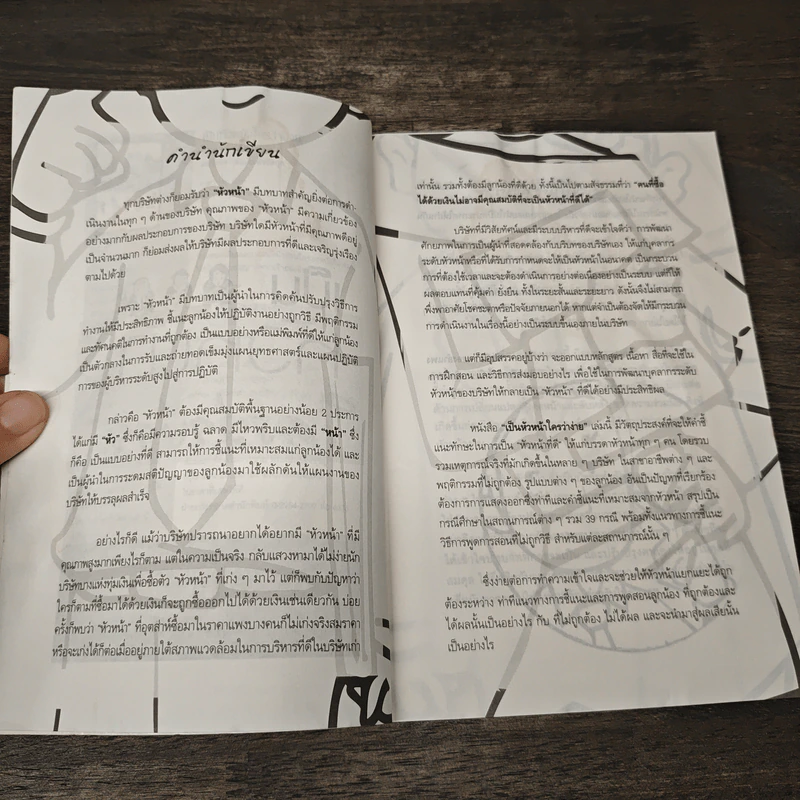 คำนำนักเขียน
ทุกบริษัทต่างก็ยอมรับว่า "หัวหน้า" มีบทบาทสำคัญยิ่งต่อการดำ-
เนินงานในทุก ๆ ด้านของบริษัท คุณภาพของ "หัวหน้า" มีความเกี่ยวข้อง
อย่างมากกับผลประกอบการของบริษัท บริษัทใดมีหัวหน้าที่มีคุณภาพดีอยู่
เป็นจำนวนมาก ก็ย่อมส่งผลให้บริษัทมีผลประกอบการที่ดีและเจริญรุ่งเรือง
ตามไปด้วย
เพราะ "หัวหน้า" มีบทบาทเป็นผู้นำในการคิดค้นปรับปรุงวิธีการ
ทำงานให้มีประสิทธิภาพ ชี้แนะลูกน้องให้ปฏิบัติงานอย่างถูกวิธี มีพฤติกรรม
และทัศนคติในการทำงานที่ถูกต้อง เป็นแบบอย่างหรือแม่พิมพ์ที่ดีให้แก่ลูกน้อง
เป็นตัวกลางในการรับและถ่ายทอดเข็มมุ่งแผนยุทธศาสตร์และแผนปฏิบัติ
การของผู้บริหารระดับสูงไปสู่การปฏิบัติ
กล่าวคือ "หัวหน้า" ต้องมีคุณสมบัติพื้นฐานอย่างน้อย 2 ประการ
ได้แก่มี "หัว" ซึ่งก็คือมีความรอบรู้ ฉลาด มีไหวพริบและต้องมี "หน้า" ซึ่ง
ก็คือ เป็นแบบอย่างที่ดี สามารถให้การชี้แนะที่เหมาะสมแก่ลูกน้องได้ และ
เป็นผู้นำในการระดมสติปัญญาของลูกน้องมาใช้ผลักดันให้แผนงานของ
บริษัทให้บรรลุผลสำเร็จ
อย่างไรก็ดี แม้ว่าบริษัทปรารถนาอยากได้อยากมี "หัวหน้า" ที่มี
คุณภาพสูงมากเพียงไรก็ตาม แต่ในความเป็นจริง กลับแสวงหามาได้ไม่ง่ายนัก
บริษัทบางแห่งทุ่มเงินเพื่อซื้อตัว "หัวหน้า" ที่เก่ง ๆ มาไว้ แต่ก็พบกับปัญหาว่า
ใครก็ตามที่ซื้อมาได้ด้วยเงินก็จะถูกซื้อออกไปได้ด้วยเงินเช่นเดียวกัน บ่อย
ครั้งก็พบว่า "หัวหน้า" ที่อุตส่าห์ซื้อมาในราคาแพงบางคนก็ไม่เก่งจริงสมราคา
หรือจะเก่งได้ก็ต่อเมื่ออยู่ภายใต้สภาพแวดล้อมในการบริหารที่ดีในบริษัทเก่า
เท่านั้น รวมทั้งต้องมีลูกน้องที่ดีด้วย ทั้งนี้เป็นไปตามสัจธรรมที่ว่า "คนที่ซื้อ
ได้ด้วยเงินไม่อาจมีคุณสมบัติที่จะเป็นหัวหน้าที่ดีได้"
บริษัทที่มีวิสัยทัศน์และมีระบบบริหารที่ดีจะเข้าใจดีว่า การพัฒนา
ศักยภาพในการเป็นผู้นำที่สอดคล้องกับบริบทของบริษัทเอง ให้แก่บุคลากร
ระดับหัวหน้าหรือที่ได้รับการกำหนดจะให้เป็นหัวหน้าในอนาคต เป็นกระบวน
การที่ต้องใช้เวลาและจะต้องดำเนินการอย่างต่อเนื่องอย่างเป็นระบบ แต่ก็ให้
ผลตอบแทนที่คุ้มค่า ยั่งยืน ทั้งในระยะสั้นและระยะยาว ดังนั้นจึงไม่สามารถ
พึ่งพาอาศัยโชคชะตาหรือปัจจัยภายนอกได้ หากแต่จำเป็นต้องจัดให้มีกระบวน
การดำเนินงานในเรื่องนี้อย่างเป็นระบบขึ้นเองภายในบริษัท
แต่ก็มีอุปสรรคอยู่บ้างว่า จะออกแบบหลักสูตร เนื้อหา สื่อที่จะใช้ใน
การฝึกสอน และวิธีการส่งมอบอย่างไร เพื่อใช้ในการพัฒนาบุคลากรระดับ
หัวหน้าของบริษัทให้กลายเป็น "หัวหน้า" ที่ดีได้อย่างมีประสิทธิผล
หนังสือ "เป็นหัวหน้าใครว่าง่าย" เล่มนี้ มีวัตถุประสงค์ที่จะให้คำชี้
แนะทักษะในการเป็น "หัวหน้าที่ดี" ให้แก่บรรดาหัวหน้าทุก ๆ คน โดยรวบ
รวมเหตุการณ์จริงที่มักเกิดขึ้นในหลาย ๆ บริษัท ในสาขาอาชีพต่าง ๆ และ
พฤติกรรมที่ไม่ถูกต้อง รูปแบบต่าง ๆ ของลูกน้อง อันเป็นปัญหาที่เรียกร้อง
ต้องการการแสดงออกซึ่งท่าทีและคำชี้แนะที่เหมาะสมจากหัวหน้า สรุปเป็น
กรณีศึกษาในสถานการณ์ต่าง ๆ รวม 39 กรณี พร้อมทั้งแนวทางการชี้แนะ
วิธีการพูดการสอนที่ไม่ถูกวิธี สำหรับแต่ละสถานการณ์นั้น ๆ
ซึ่งง่ายต่อการทำความเข้าใจและจะช่วยให้หัวหน้าแยกแยะได้ถูก
ต้องระหว่าง ท่าทีแนวทางการชี้แนะและการพูดสอนลูกน้อง ที่ถูกต้องและ
ได้ผลนั้นเป็นอย่างไร กับ ที่ไม่ถูกต้อง ไม่ได้ผล และจะนำมาสู่ผลเสียนั้น
เป็นอย่างไร